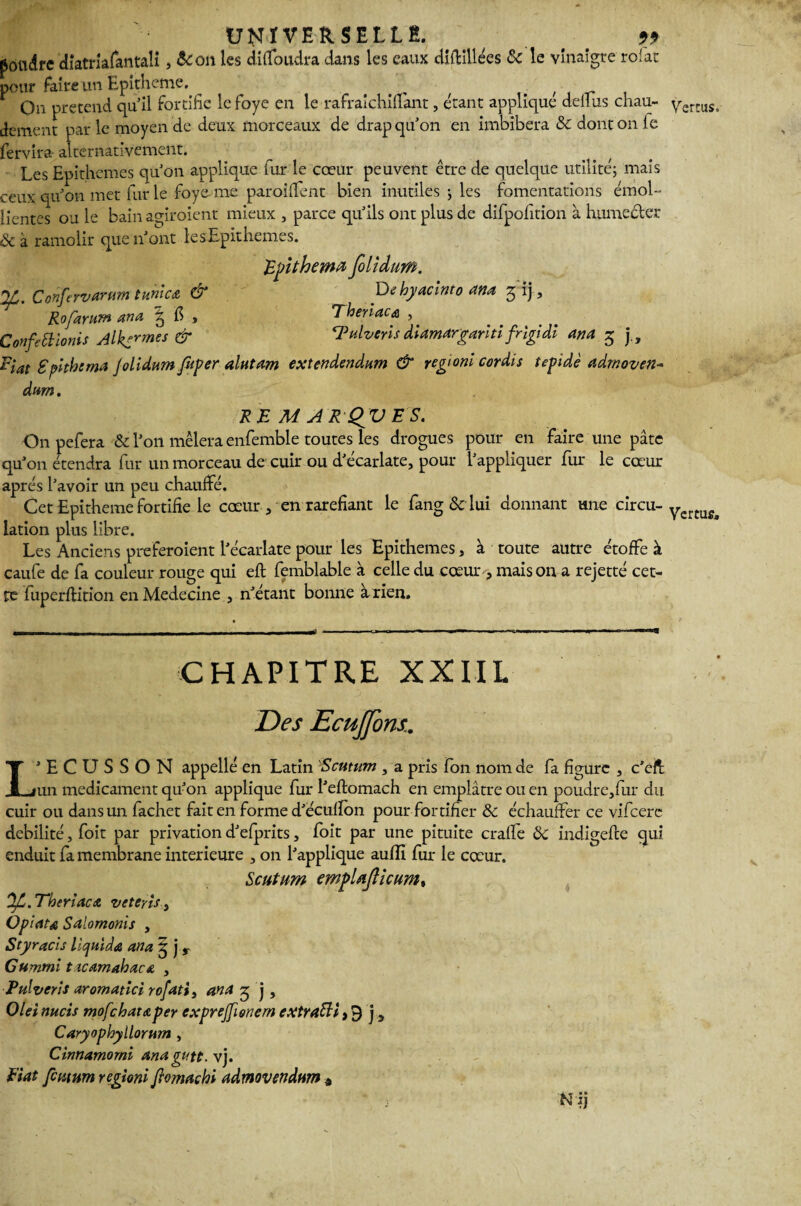 UNIVERSELLE. 99
poudre diatriasantali, & on les dissoudra dans les eaux distillées & le vinaigre rosat
pour faire un Epitheme.
On pretend qu'il fortifie le foye en le rafraichissant, étant appliqué dessus chau- Vertus.
dement par le moyen de deux morceaux de drap qu'on en imbibera & dont on se
servira alternativement.
Les Epithemes qu'on applique sur le cœur peuvent être de quelque utilité; mais
ceux qu'on met sur le foye me paroissent bien inutiles ; les fomentations émol-
lientes ou le bain agiroient mieux , parce qu'ils ont plus de disposition à humecter
& à ramolir que n'ont les Epithemes.
Epithema solidum.
℞. Conservarum tunicæ &
Rosarum ana ℥ ß ,
Confectionis Alkermes &
De hyacinto ana ʒ ij ,
Theriacæ ,
Pulveris diamargariti frigidi ana ʒ j.,
Fiat Epithema solidum super alutam extendendum & regioni cordis tepidè admoven-
dum.
REMARQVES.
On pesera & l'on mêlera ensemble toutes les drogues pour en faire une pâte
qu'on étendra sur un morceau de cuir ou d'écarlate, pour l'appliquer sur le cœur
aprés l'avoir un peu chauffé.
Cet Epitheme fortifie le cœur , en rarefiant le sang & lui donnant une circu- Vertus.
lation plus libre.
Les Anciens preferoient l'écarlate pour les Epithemes, à toute autre étoffe à
cause de sa couleur rouge qui est semblable à celle du cœur , mais on a rejetté cet-
te superstition en Medecine , n'étant bonne à rien.
CHAPITRE XXIII.
Des Ecussons.
L'ECUSSON appellé en Latin Scutum , a pris son nom de sa figure , c'est
un medicament qu'on applique sur l'estomach en emplâtre ou en poudre, sur du
cuir ou dans un sachet fait en forme d'écusson pour fortifier & échauffer ce viscere
debilité, soit par privation d'esprits, soit par une pituite crasse & indigeste qui
enduit sa membrane interieure , on l'applique aussi sur le cœur.
Scutum emplasticum.
℞. Theriacæ veteris ,
Opiatæ Salomonis ,
Styracis liquidæ ana ℥ j ,
Gummi tacamahacæ ,
Pulveris aromatici rosati, ana ʒ j ,
Olei nucis moschatæ per expressionem extracti , ℈ j ,
Caryophyllorum ,
Cinnamomi ana gutt. vj.
Fiat scutum regioni stomachi admovendum .
N ij